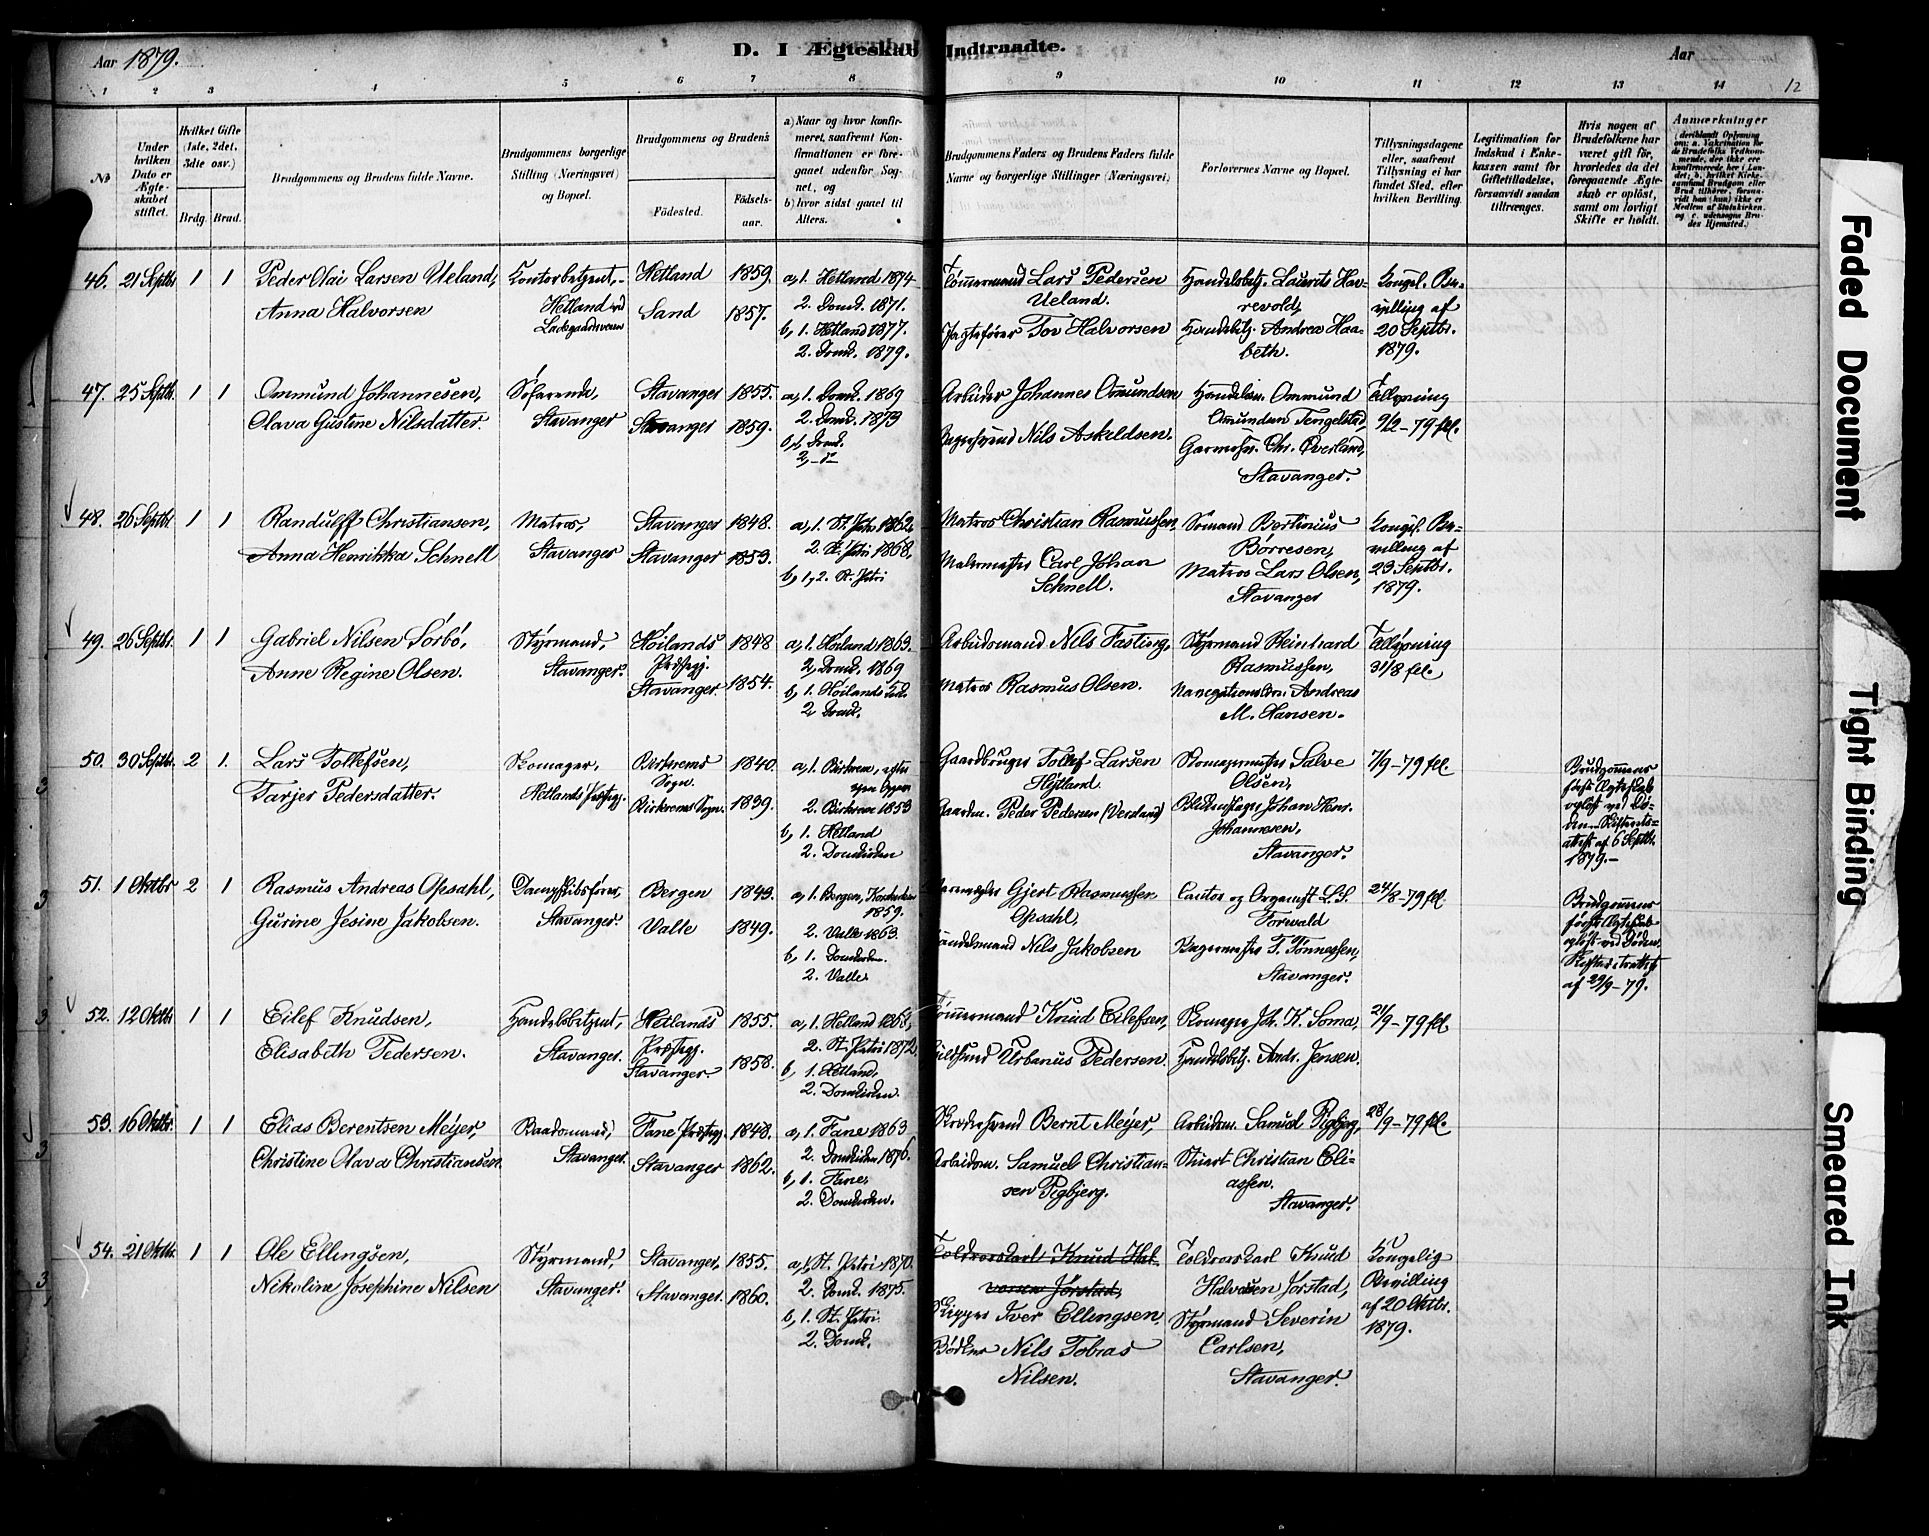 Aar 1879.
D. I Ægteskab Indtraadte.
Aar
12
1 2 3 4 5 6 7 8 9 10 11 12 13 14
No
Under hvilken Dato er Ægteskabet stiftet.
Hvilket Gifte (1ste, 2det, 3die osv.)
Brdg. Brud.
Brudgommens og Brudens fulde Navne.
Brudgommens borgerlige Stilling (Næringsvei) og Bopæl.
Brudgommens og Brudens
Födested.
Födselsaar.
a) Naar og hvor konfirmeret, saafremt Konfirmationen er foregaaet udenfor Sognet, og
b) hvor sidst gaaet til Alters.
Brudgommens Faders og Brudens Faders fulde Navne og borgerlige Stillinger (Næringsvei)
Forlovernes Navne og Bopæl.
Tillysningsdagene eller, saafremt Tillysning ei har fundet Sted, efter hvilken Bevilling.
Legitimation for Indskud i Enkekassen samt for Giftetilladelse, forsaavidt saadan tiltrænges.
Hvis nogen af Brudefolkene har været gift för, hvorledes da det foregaaende Ægteskab er oplöst, samt om lovligt Skifte er holdt.
Anmærkninger
46. 21 Septbr 1 1
Peder Olai Larsen Ueland,
Anna Halvorsen
Kontorbetjent,
Hetland ved
Ladegaardsveien
Hetland 1859.
Sand 1857.
a, 1. Hetland 1874
2. Domk. 1871.
b, 1. Hetland 1877.
2. Domk. 1879.
Tömmermand Lars Pedersen
Ueland.
Jagtefører Tov Halvorsen
Handelsbetj. Laurits Havrevold,
Handelsbetj. Andrea Haabeth.
Kongel. Bevilling af
20 Septbr.
1879.
47. 25 Septbr. 1 1
Ommund Johannesen,
Olava Gustine Nilsdatter.
Søfarende,
Stavanger
Stavanger 1855.
Stavanger 1859.
a, 1. Domk. 1869
2. Domk. 1873
b, 1. Domk.
2, –d–
Arbeider Johannes Omundsen
Bagersvend Nils Askildsen.
Handelsm. Ommund
Omundsen Tengelstad,
Garmesv. Chr. Överland,
Stavanger.
Tillysning
9/2–79 fl.
48. 26 Septbr 1 1
Randulff Christiansen,
Anna Henrikka Schnell
Matros,
Stavanger
Stavanger 1848.
Stavanger 1853.
a, 1. St. Petri 1862.
2. St. Petri 1868.
b, 1, 2. St. Petri
Matros Christian Rasmussen,
Malermester Carl Johan
Schnell.
Sømand Bertinius
Børresen,
Matros Lars Olsen,
Stavanger
Kongel. Bevilling af
23 Septbr.
1879.
49. 26 Septbr. 1 1
Gabriel Nilsen Sörbö,
Anne Regine Olsen.
Styrmand,
Stavanger.
Høilands
Præstegj. 1848
Stavanger 1854.
a, 1. Høiland 1863.
2, Domk. 1869
b, 1. Høilands
2 Domk.
Arbeidsmand Nils Fasting,
Matros Rasmus Olsen.
Styrmand Reinhard
Rasmussen,
Andreas
M. Hansen.
Tillysning
31/8 fl.
50. 30 Septbr. 2 1.
Lars Tollefsen,
Tarjer Pedersdatter.
Skomager,
Hetlands Præstegj.
Birkrems
Sogn. 1840.
Birkrems Sogn. 1839.
a, 1. Birkrem, efter
egen Opgave
2. Birkrem 1853
b, 1. Hetland
2. Domkirken
Gaardbruger Tollef Larsen
Hÿtland.
Gaardm. Peder Pedersen
Skomagermester Salve
Olsen,
Blikkenslager Johan Henr.
Johannesen,
Stavanger.
7/9–79 fl.
Brudgommens
første Ægteskab
opløst ved Døden. Skifterets
attest af 6 Septbr.
1879.–
51. 1 Oktbr 2 1
Rasmus Andreas Opsahl,
Gurine Jesine Jakobsen.
Dampskibsfører,
Stavanger.
Bergen 1843.
Valle 1849.
a, 1. Bergen, Korskirken
1859.
2. Valle 1863.
b, 1. Domkirken.
2. Valle
Gjert Rasmussen
Opsahl,
Handelsmand Nils Jakobsen
Cantor og Organist L. S.
Forwald
Bagermester T. Tønnessen,
Stavanger.
24/8–79 fl.
Brudgommens
første Ægteskab
opløst ved Døden.
Skifteretsattest
af 29/9–79.
52. 12 Oktbr 1 1
Eilef Knudsen,
Elisabeth Pedersen.
Handelsbetjent,
Stavanger.
Hetlands
Præstegj. 1855.
Stavanger. 1858.
a, 1. Hetland 1868,
2. St. Petri 1872.
b, 1. Hetland,
2. Domkirken.
Tömmermand Knud Eilefsen,
Urbanus Pedersen.
Skomager Joh. K. Soma,
Handelsbetj. Andr. Jensen.
21/9–79 fl.
53. 16 Oktbr. 1 1
Elias Berentsen Meÿer,
Christine Olava Christiansen.
Baadsmand,
Stavanger.
Fane Præstegj. 1848.
Stavanger 1862.
a, 1. Fane 1863
2. Domkirken 1876.
b, 1. Fane,
2. Domkirken.
Skrædersvend Bernt Meÿer,
Arbeidsm. Samuel Christiansen Rgbjerg.
Arbeidsm. Samuel Rgbjerg,
Stuart Christian Eliassen.
Stavanger.
28/9–79 fl.
54. 21 Oktbr. 1 1
Ole Ellingsen,
Nikoline Josephine Nilsen
Styrmand,
Stavanger.
Stavanger, 1855.
Stavanger. 1860.
a, 1. St. Petri 1870.
2. Domk. 1875.
b, 1. St. Petri.
2. Domk.
Toldroerskarl Knud Halvorsen Jørstad,
Skipper Iver Ellingsen.
Bødker Nils Tobias
Nilsen.
Toldroerskarl Knud
Halvorsen Jørstad,
Styrmand Severin
Carlsen,
Stavanger.
Kongelig
Bevilling
af 20 Oktbr.
1879.
Faded Document
Tight Binding
Smeared Ink